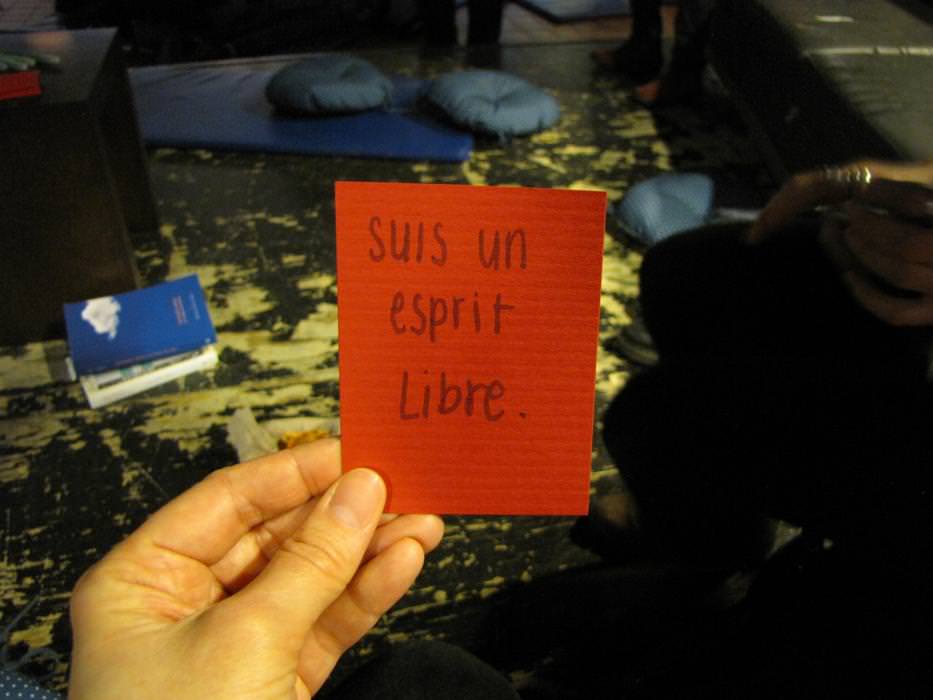 suis un
esprit
Libre.